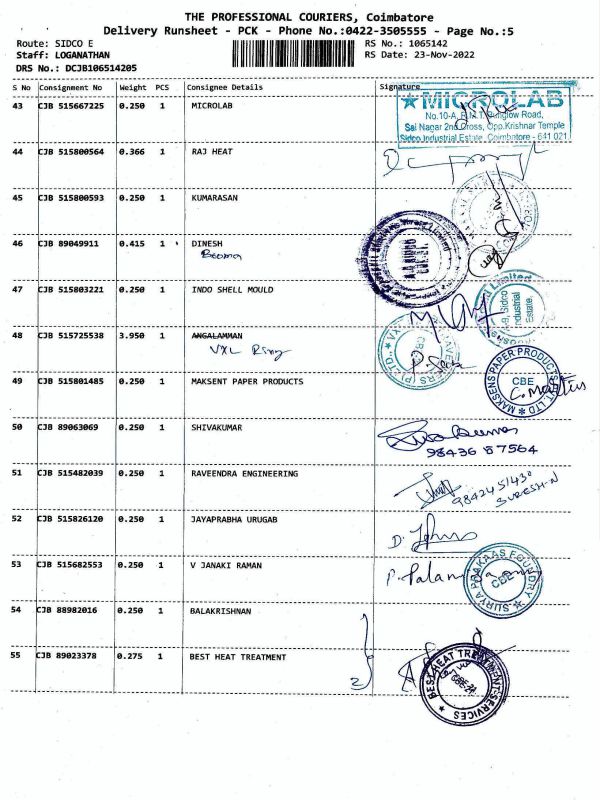 THE PROFESSIONAL COURIERS, Coimbatore
Delivery Runsheet - PCK - Phone No.:0422-3505555 - Page No.:5
Route: SIDCO E
RS No.: 1065142
Staff: LOGANATHAN
RS Date: 23-Nov-2022
DRS No.: DCJB106514205
S No Consignment No Weight PCS Consignee Details Signature
43 CJB 515667225 0.250 1 MICROLAB
MICROLAB
No.10-A, Bunglow Road,
Sai Nagar 2nd Cross, Opp.Krishnar Temple
Sidco Industrial Estate, Coimbatore - 641 021
44 CJB 515800564 0.366 1 RAJ HEAT
45 CJB 515800593 0.250 1 KUMARASAN
46 CJB 89049911 0.415 1 DINESH
47 CJB 515803221 0.250 1 INDO SHELL MOULD
Limited
Sidco
Industrial
Estate,
48 CJB 515725538 3.950 1 ANGALAMMAN
VXL
49 CJB 515801485 0.250 1 MAKSENT PAPER PRODUCTS
MAKSENS PAPER PRODUCTS PVT LTD
CBE
50 CJB 89063069 0.250 1 SHIVAKUMAR
98436 87564
51 CJB 515482039 0.250 1 RAVEENDRA ENGINEERING
9842451430
SURESH.N
52 CJB 515826120 0.250 1 JAYAPRABHA URUGAB
53 CJB 515682553 0.250 1 V JANAKI RAMAN
SURYA PRAKAAS FOUNDRY
CBE
54 CJB 88982016 0.250 1 BALAKRISHNAN
55 CJB 89023378 0.275 1 BEST HEAT TREATMENT
2
BEST HEAT TREATMENT SERVICES